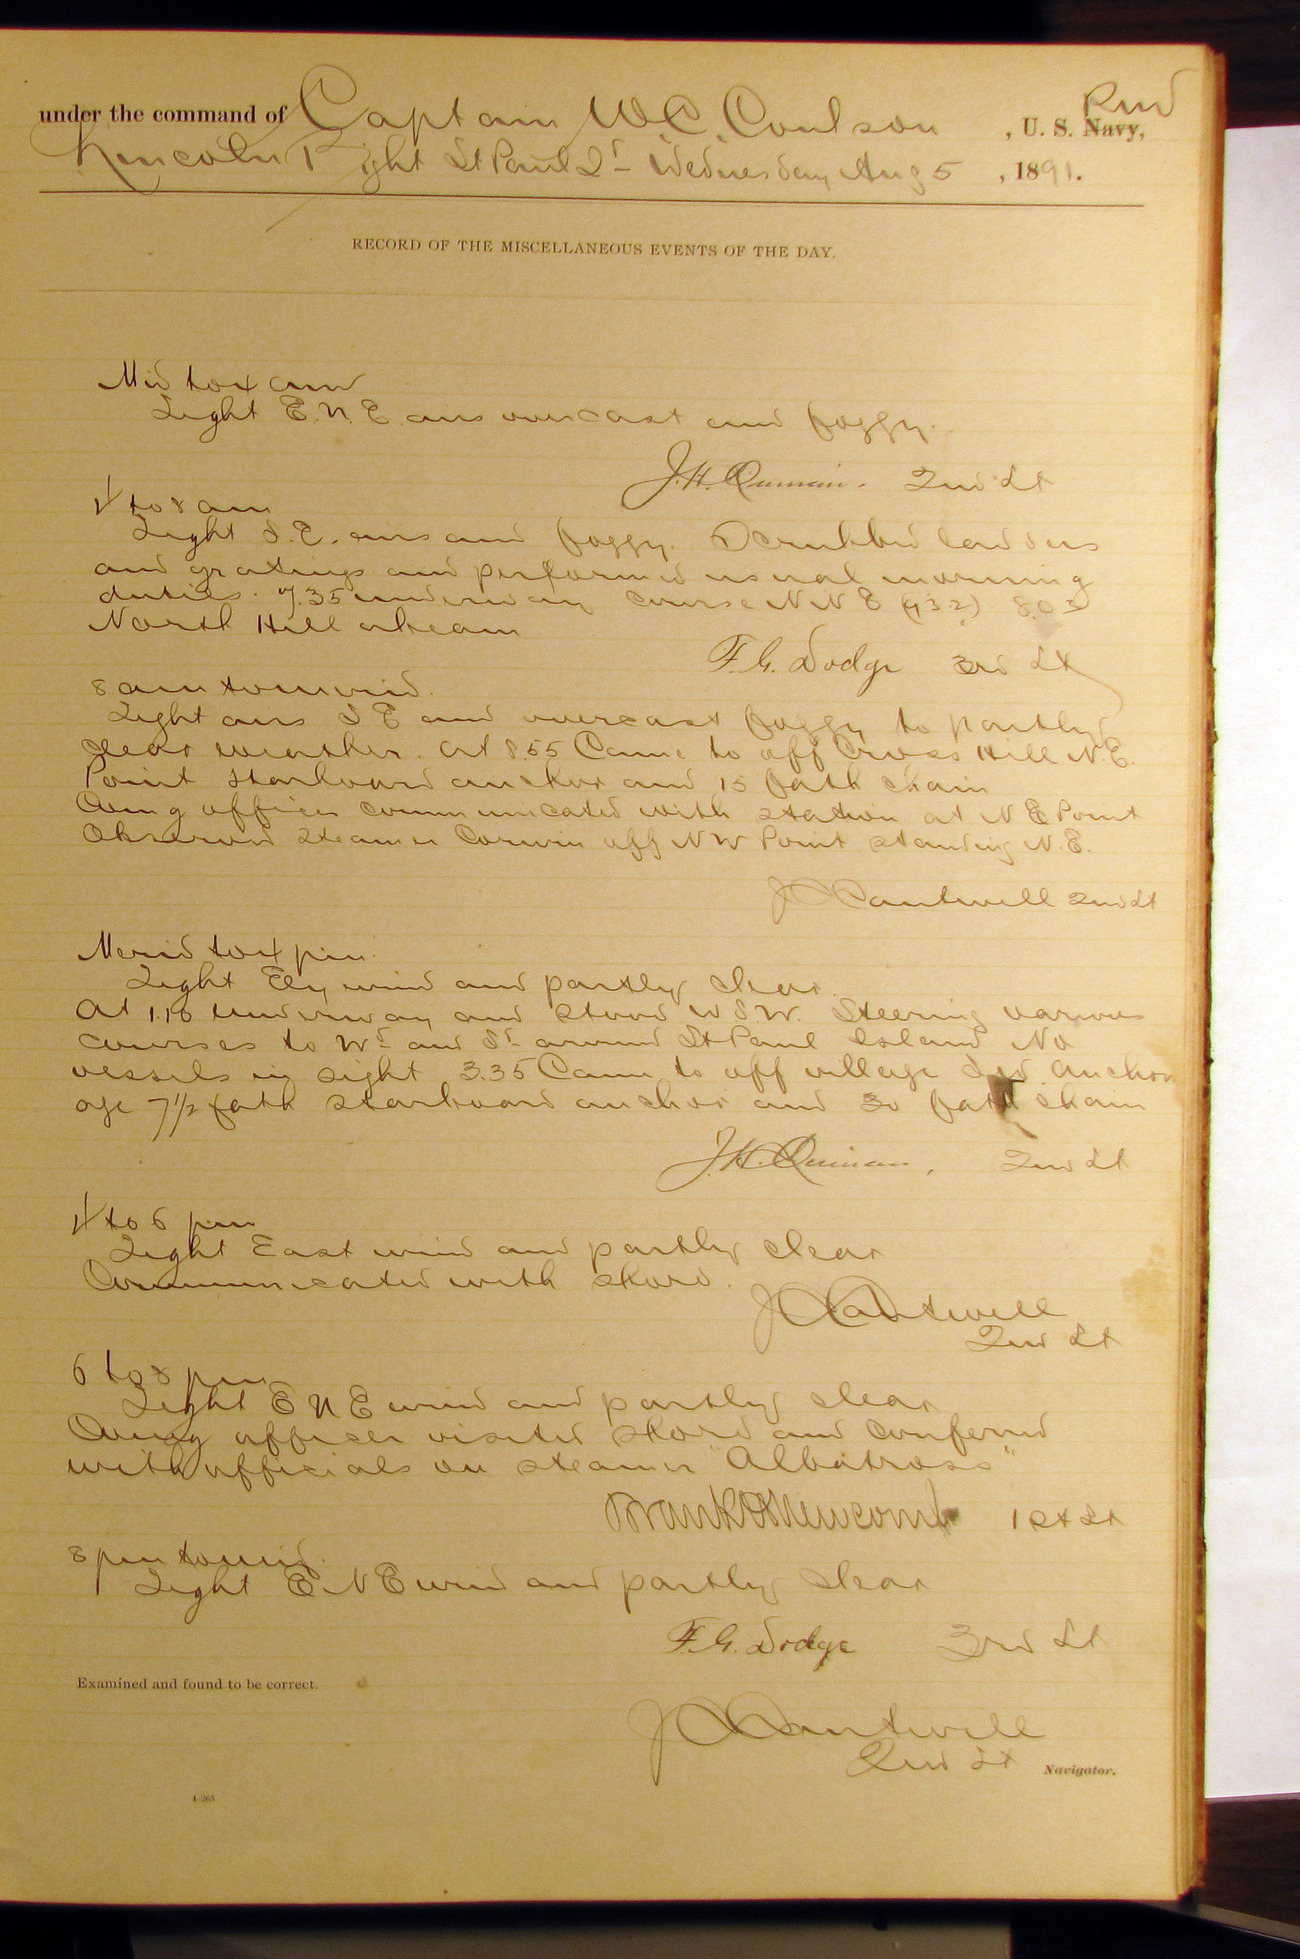 under the command of Captain W.C. Coulson, U. S. Navy, Rev
Lincoln Bight St Paul Id – Wednesday Aug 5, 1891.
RECORD OF THE MISCELLANEOUS EVENTS OF THE DAY.
Mid to 4 am
Light E.N.E. airs overcast and foggy.
J.H. Quinan. 2nd Lt
4 to 8 am
Light S.E. airs and foggy. Scrubbed ladders
and gratings and performed usual morning
duties. 7.35 underway course NNE (73.2) 8.03
North Hill abeam
F.G. Dodge 3rd Lt
8 am to merid.
Light airs S E and overcast foggy to partly
clear weather. At 8.55 Came to off Cross Hill N.E.
Point starboard anchor and 15 fath chain
Comg officer communicated with station at N E Point
Observed steamer Corwin off NW Point standing N.E.
J C Cantwell 2nd Lt
Merid to 4 pm.
Light Ely wind and partly clear.
At 1.10 underway and stood W S.W. Steering various
courses to Wd and Sd around St Paul Island No
vessels in sight 3.35 Came to off village anchor
age 7½ fath starboard anchor and 30 fath chain
J.H. Quinan, 2nd Lt
4 to 6 pm
Light East wind and partly clear
Communicated with shore.
J C Cantwell
2nd Lt
6 to 8 pm
Light E N E wind and partly clear
Comg officer visited shore and conferred
with officials on steamer "Albatross"
Frank H Newcomb 1st Lt
8 pm to mid.
Light E N E wind and partly clear
F.G. Dodge 3rd Lt
Examined and found to be correct.
J C Cantwell
2nd Lt Navigator.
4-265